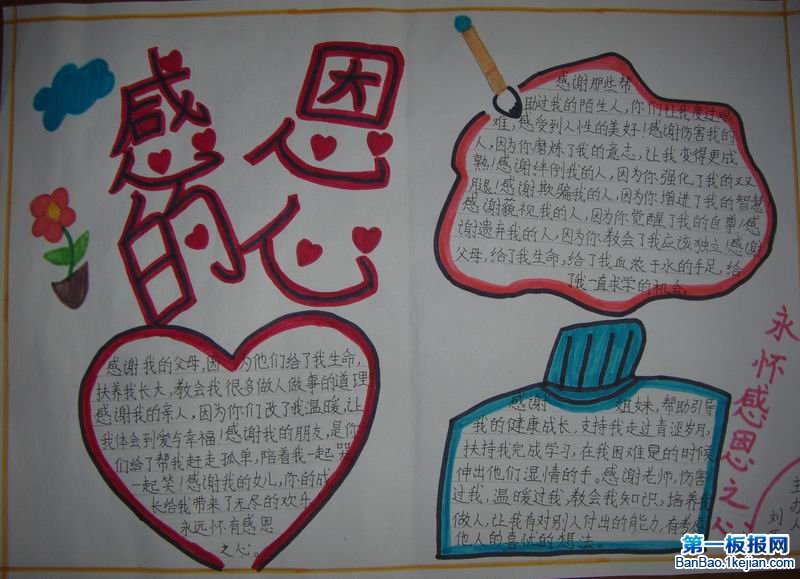 感恩
的心
感谢我的父母,因为他们给了我生命,
扶养我长大,教会我很多做人做事的道理
感谢我的亲人,因为你们改了我温暖,让
我体会到爱与幸福!感谢我的朋友,是你
们给了帮我赶走孤单,陪着我一起哭
一起笑!感谢我的女儿,你的成
长给我带来了无尽的欢乐
永远怀有感恩
之心。
感谢那些帮
助过我的陌生人,你们让我度过
难,感受到人性的美好!感谢伤害我的
人,因为你磨炼了我的意志,让我变得更成
熟!感谢绊倒我的人,因为你强化了我的双
腿!感谢欺骗我的人,因为你增进了我的智慧
感谢藐视我的人,因为你觉醒了我的自尊!感
谢遗弃我的人,因为你教会了我应该独立!感谢
父母,给了我生命,给了我血浓于水的手足,给
了我一直求学的机会
感谢 姐妹,帮助引导
我的健康成长,支持我走过青涩岁月,
扶持我完成学习,在我困难是的时候
伸出他们湿情的手。感谢老师,伤害
过我,温暖过我,教会我知识,培养我
做人,让我有对别人付出的能力,有考虑
他人的喜忧的想法。
永怀感恩之心
主
办
人
刘
第一板报网
BanBao.1kejian.com